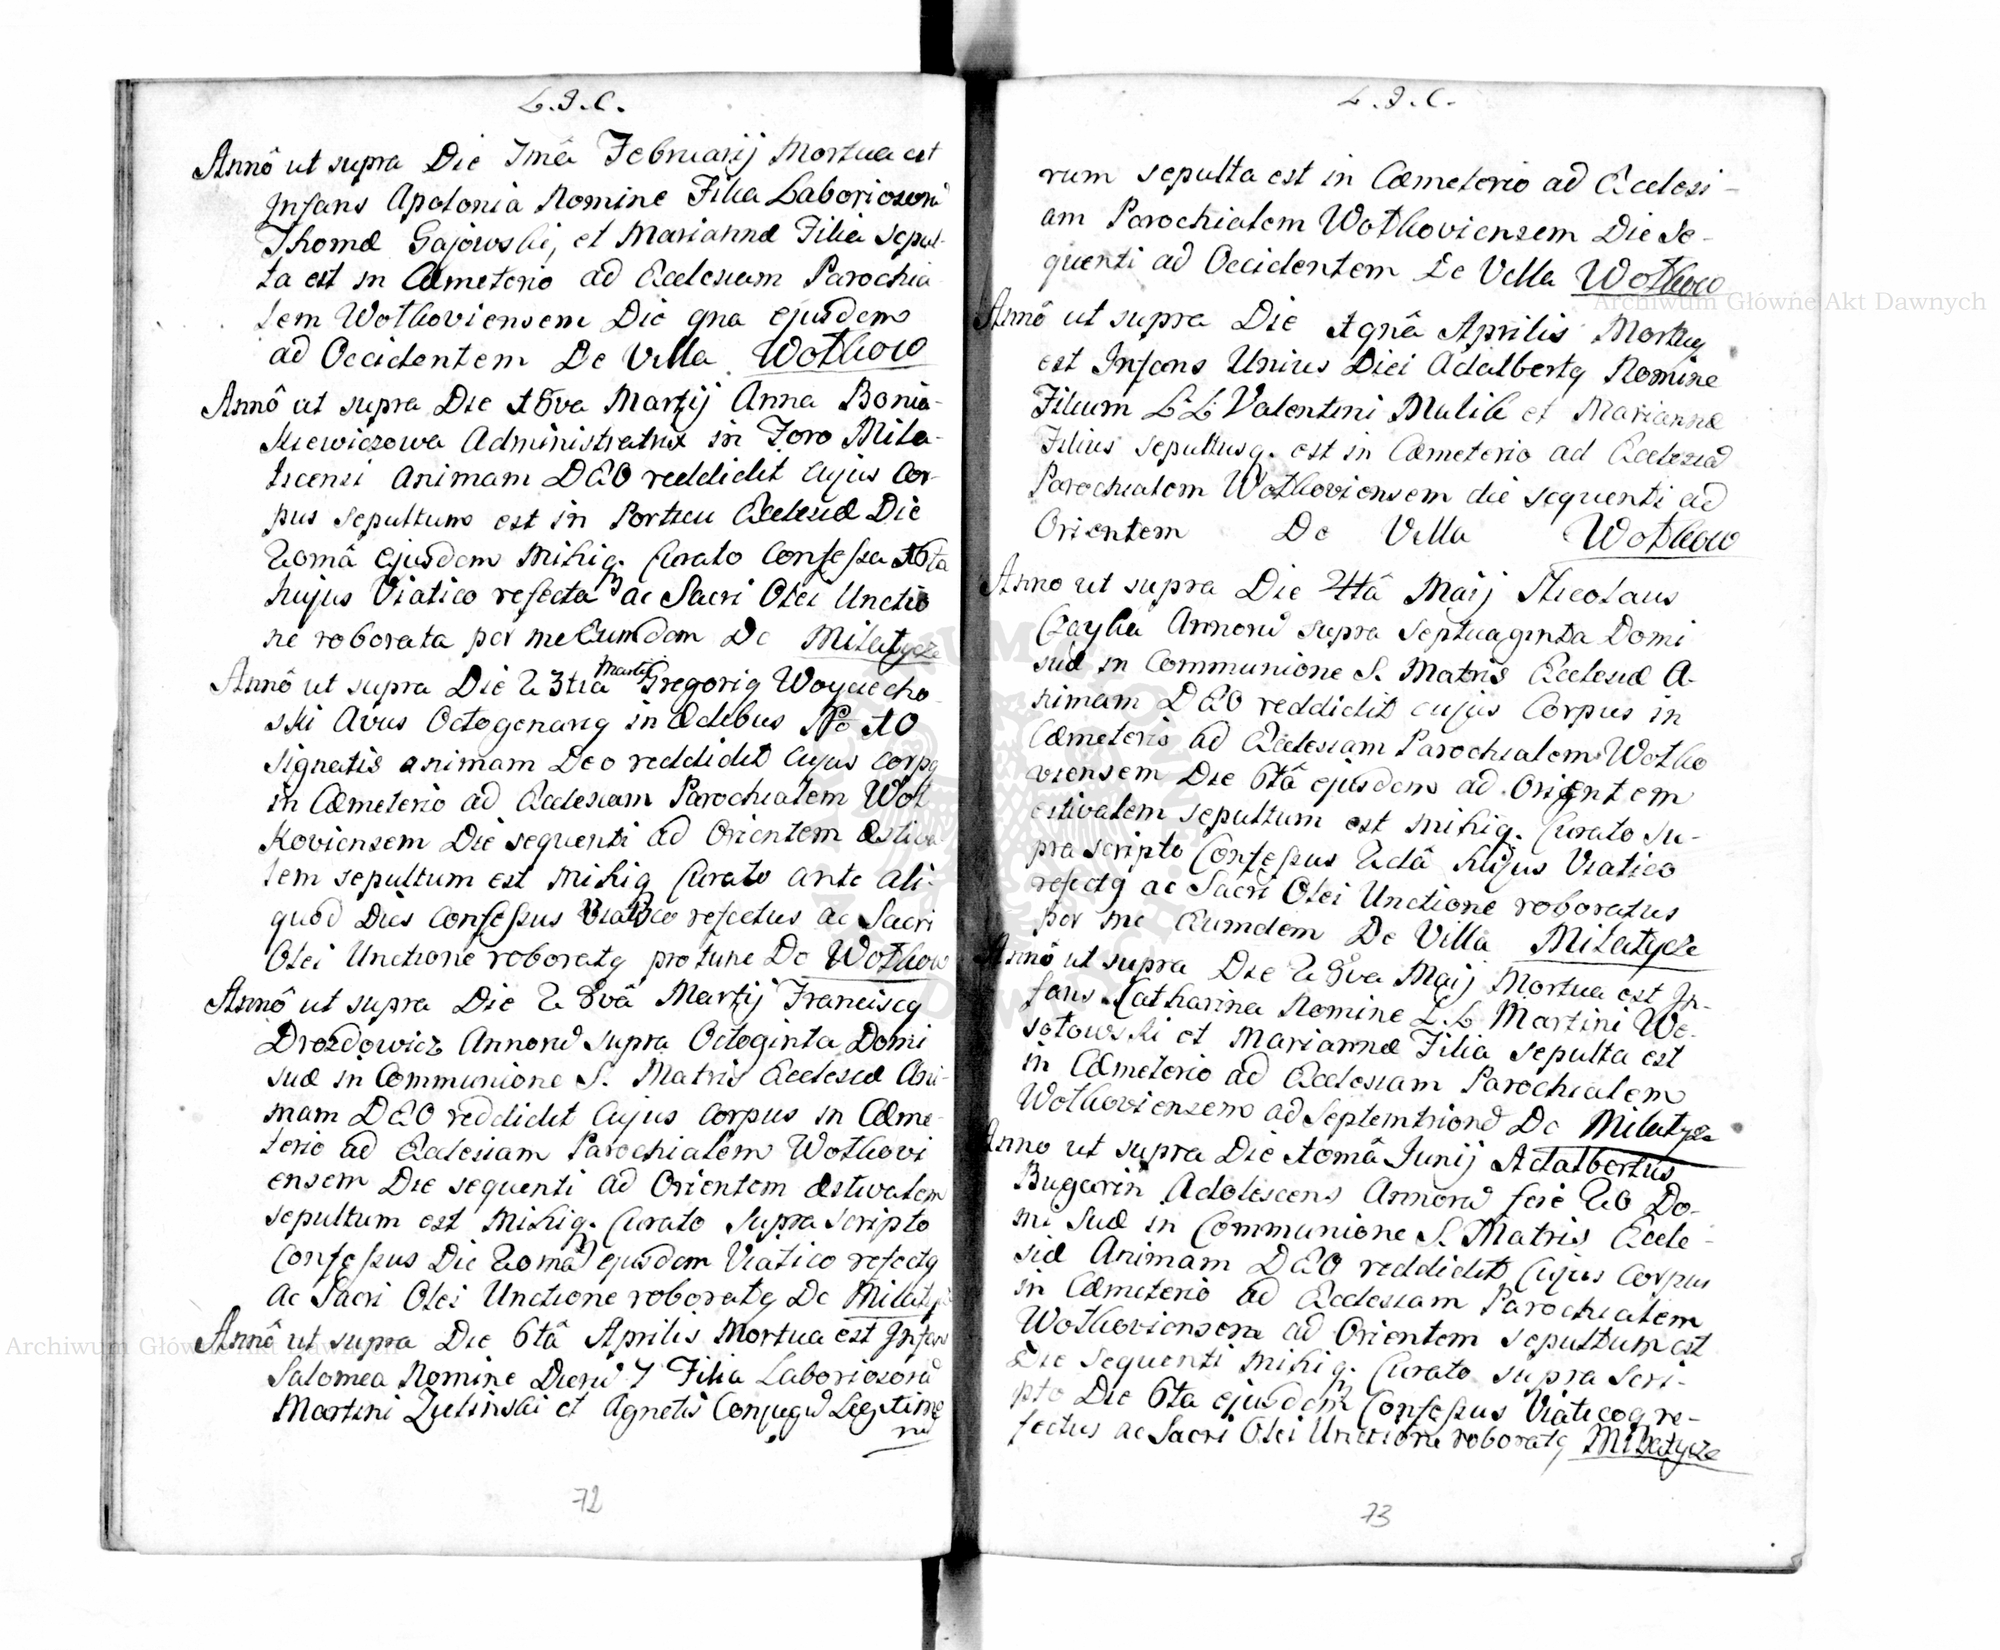 L. J. C.
Annô ut supra Die 7mâ Februarij Mortua est
Infans Apolonia Nomine Filia Laboriosorũ
Thomæ Gajowski, et Mariannæ Filia sepul-
ta est in Cæmeterio ad Ecclesiam Parochia
lem Wotkoviensem Die 9na ejusdem
ad Occidentem De Villa Wotkow
Annô ut supra Die 18va Martij Anna Bonia-
kiewiczowa Administratrix in Foro Mila-
ticensi Animam DEO reddidit cujus Cor-
pus sepultum est in Porticu Ecclesiæ Die
20mâ ejusdem mihiq. Curato Confessa 16ta
hujus Viatico refecta ac Sacri Olei Unctio
ne roborata per me Eumdem De Milatycze
Annô ut supra Die 23tia Martij Gregorig Woyciecho
ski Avus Octogenarig in Ædibus No 10
signatis animam Deo reddidit cujus corpg
in Cæmeterio ad Ecclesiam Parochialem Wot
koviensem Die sequenti ad Orientem Æstiva
lem sepultum est mihiq Curato ante ali-
quod Dies confessus Viatico refectus ac Sacri
Olei Unctione roboratg pro tunc De Wotkow
Annô ut supra Die 28vâ Martij Franciscg
Drozdowicz Annorũ supra Octoginta Domi
suæ in Communione S. Matris Ecclesiæ Ani-
mam DEO reddidit Cujus Corpus in Cæme-
terio ad Ecclesiam Parochialem Wotkovi
ensem Die sequenti ad Orientem Æstivalem
sepultum est mihiq. Curato supra scripto
Confessus Die 20mâ ejusdem Viatico refectg
ac Sacri Olei Unctione roboratg De Milaty
Annô ut supra Die 6tâ Aprilis Mortua est Infans
Salomea Nomine Dierũ 7 Filia Laboriosorũ
Martini Zielinski et Agnetis Conjugũ Legitimo
rũ
72
L. J. C.
rum sepulta est in Cæmeterio ad Ecclesi-
am Parochialem Wotkoviensem Die Se-
quenti ad Occidentem De Villa Wotkow
Annô ut supra Die 19nâ Aprilis Mortug
est Infans Unius Diei Adalbertg Nomine
Filium LL Valentini Mulik et Mariannæ
Filius sepultusq. est in Cæmeterio ad Ecclesiã
Parochialem Wotkoviensem die sequenti ad
Orientem De Villa Wotkow
Anno ut supra Die 4tâ Maij Nicolaus
Czayka Annorũ supra Septuaginta Domi
suæ in Communione S. Matris Ecclesiæ A-
nimam DEO reddidit cujus Corpus in
Cæmeterio ad Ecclesiam Parochialem Wotko
viensem Die 6tâ ejusdem ad Orientem
estivalem sepultum est mihiq. Curato Su-
pra scripto Confessus 2dâ hujus Viatico
refectg ac Sacri Olei Unctione roboratus
per me Eumdem De Villa Milatycze
Annô ut supra Die 28va Maij Mortua est In-
fans Catharina Nomine L.L Martini We-
sotowski et Mariannæ Filia sepulta est
in Cæmeterio ad Ecclesiam Parochialem
Wotkoviensem ad Septemtrionẽ De Milatycze
Anno ut supra Die 10mâ Junij Adalbertus
Bugarin Adolescens Annorũ fere 20 Do-
mi suæ in Communione S. Matris Eccle-
siæ Animam DEO reddidit Cujus Corpus
in Cæmeterio ad Ecclesiam Parochialem
Wotkoviensem ad Orientem sepultum est
Die Sequenti mihiq. Curato supra Scri-
pto Die 6ta ejusdem Confessus Viaticoq re-
fectus ac Sacri Olei Unctione roboratg Milatycze
73
Archiwum Główne Akt Dawnych
Archiwum Główne Akt Dawnych